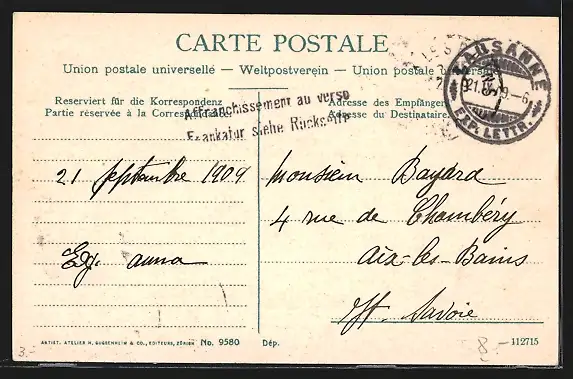 CARTE POSTALE
Union postale universelle — Weltpostverein — Union postale universelle
Reserviert für die Korrespondenz
Partie réservée à la Correspondance
Affranchissement au verso
Frankatur siehe Rückseite
Adresse des Empfängers
Adresse du Destinataire
LAUSANNE
EXP. LETTR.
21 septembre 1909
Monsieur Bayard
4 rue de Chambéry
Aix-les-Bains
Hte Savoie
anna
ARTIST. ATELIER H. GUGGENHEIM & CO., EDITEURS, ZÜRICH No. 9580 Dép. 112715
3.-
8.-